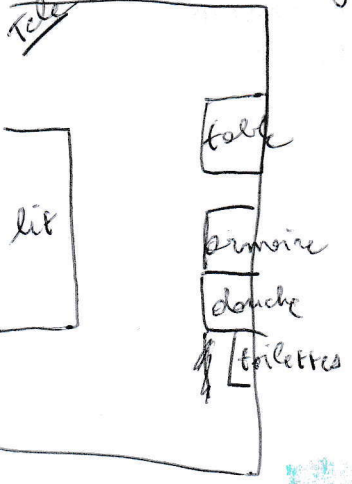 Tele
table
lit
armoire
douche
toilettes